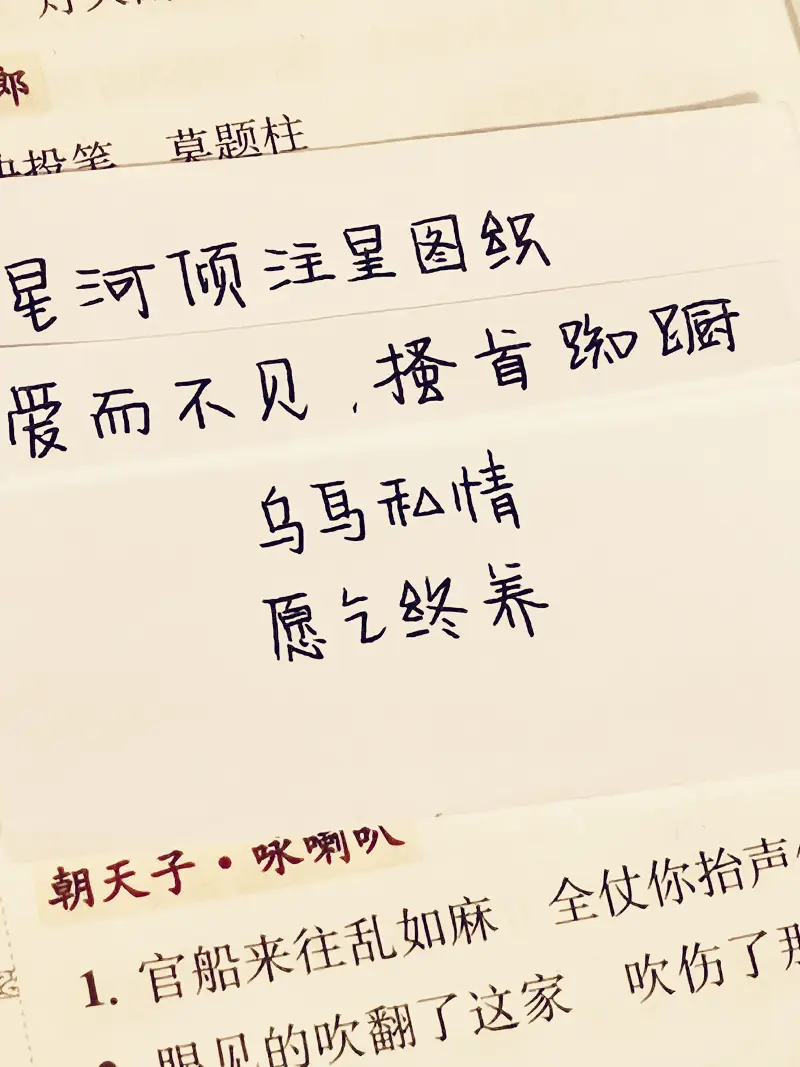 郎
投笔 莫题柱
星河倾注星图织
爱而不见,搔首踟蹰
乌鸟私情
愿乞终养
朝天子·咏喇叭
1. 官船来往乱如麻 全仗你抬声
眼见的吹翻了这家 吹伤了那